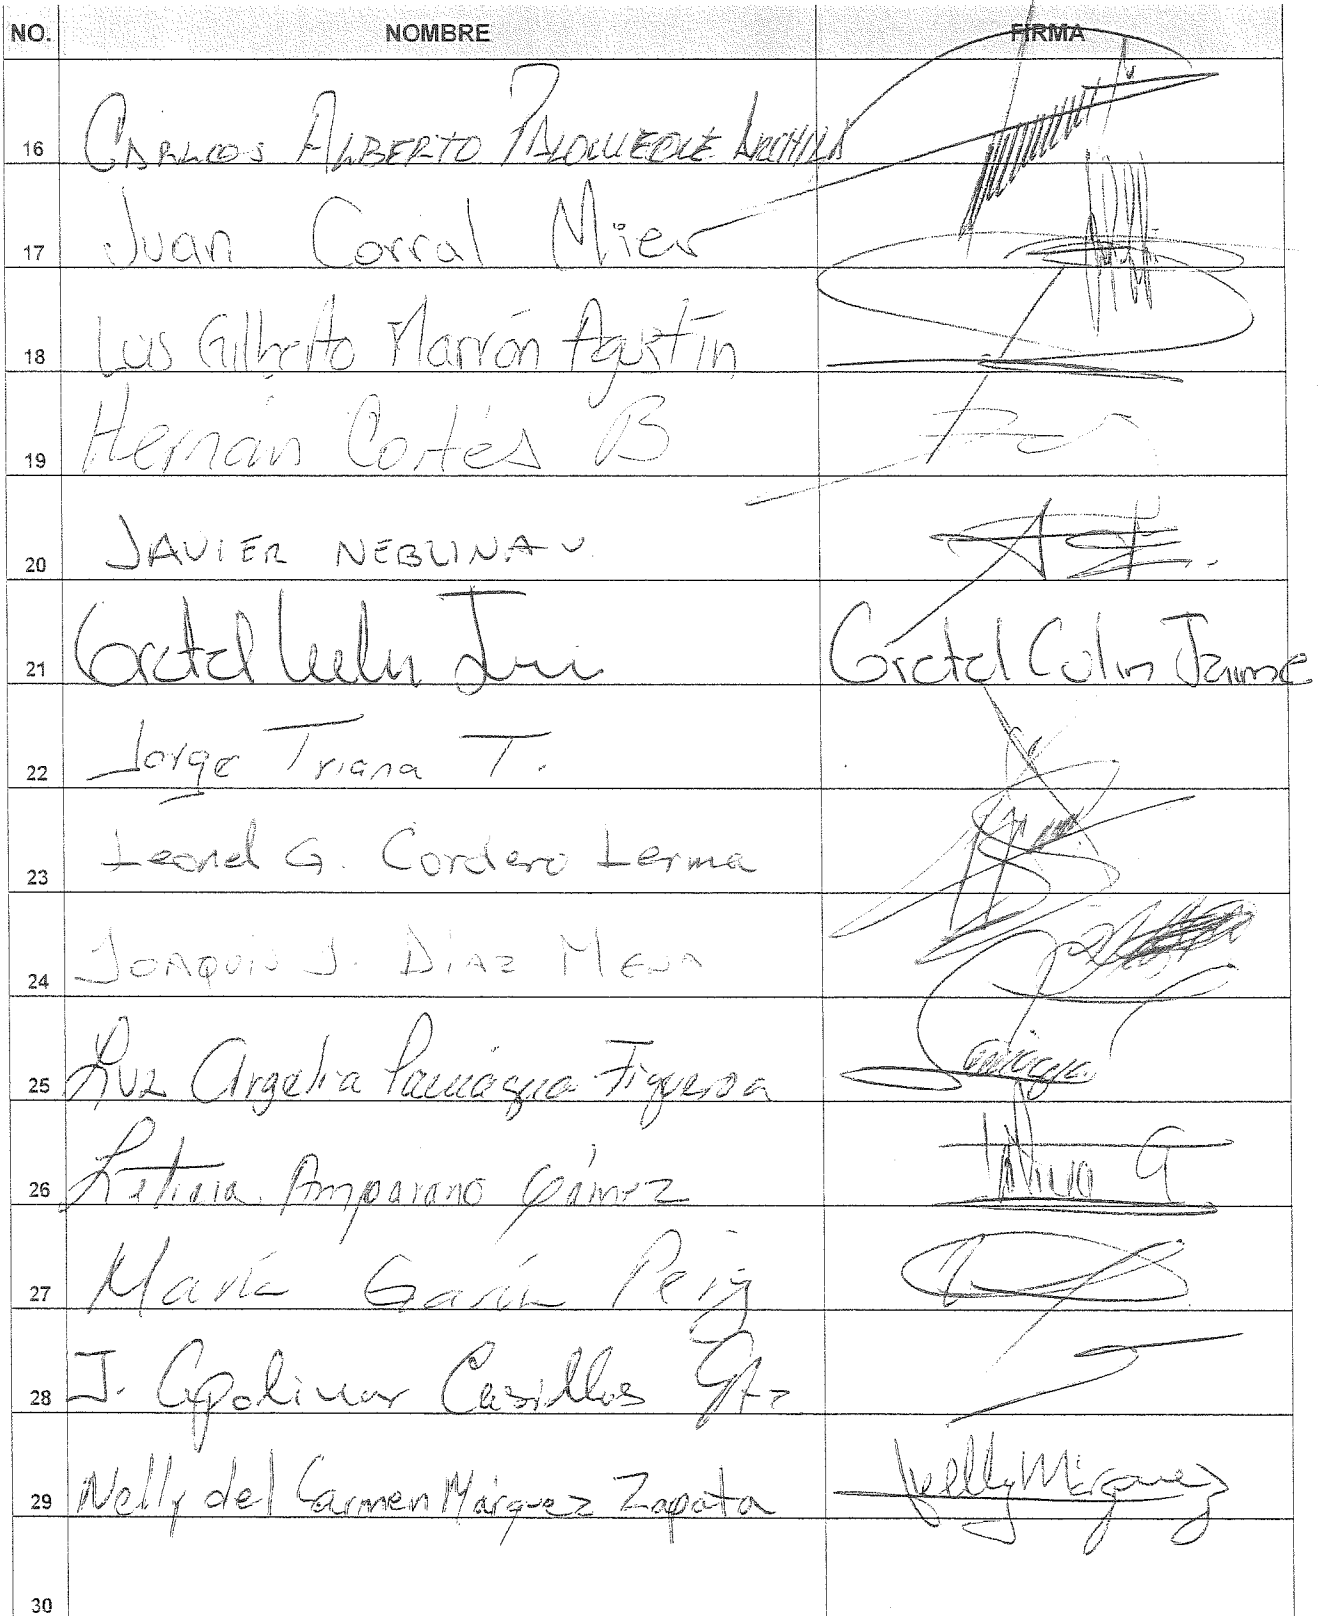 NO. NOMBRE FIRMA
16 CARLOS ALBERTO PALOMEQUE ARCHILA
17 Juan Corral Mier
18 Luis Gilberto Marrón Agustín
19 Hernán Cortés B
20 JAVIER NEBLINA V.
21 Gretel Culin Jaime Gretel Culin Jaime
22 Jorge Triana T.
23 Leonel G. Cordero Lerma
24 JOAQUIN J. DÍAZ MENA
25 Luz Argelia Paniagua Figueroa
26 Leticia Amparano Gámez
27 María García Pérez
28 J. Apolinar Casillas Gtz
29 Nelly del Carmen Márquez Zapata Nelly Márquez
30